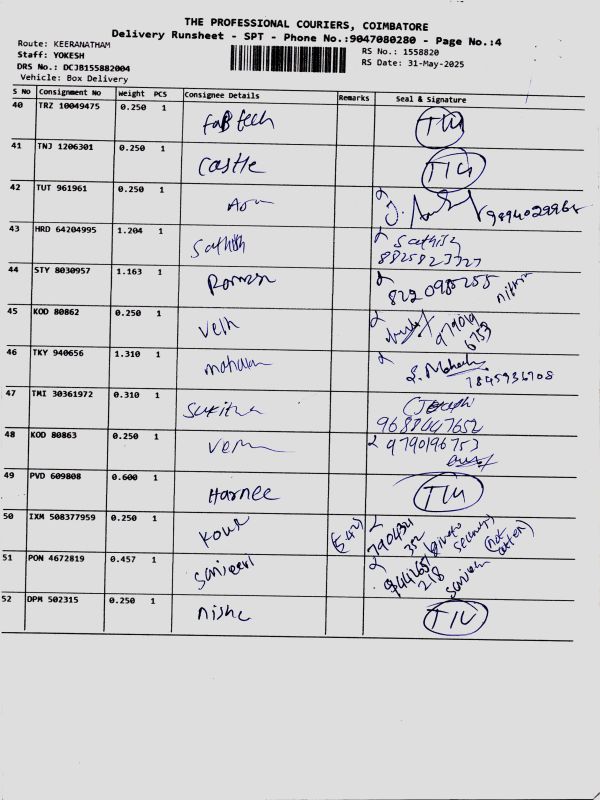 THE PROFESSIONAL COURIERS, COIMBATORE
Delivery Runsheet - SPT - Phone No.:9047080280 - Page No.:4
Route: KEERANATHAM
Staff: YOKESH
DRS No.: DCJB155882004
Vehicle: Box Delivery
RS No.: 1558820
RS Date: 31-May-2025
S No Consignment No Weight PCS Consignee Details Remarks Seal & Signature
40 TRZ 10049475 0.250 1 Fab tech
41 TNJ 1206301 0.250 1 Castle
42 TUT 961961 0.250 1
43 HRD 64204995 1.204 1 Sathish Sathish
8825823727
44 STY 8030957 1.163 1 8220985255
45 KOD 80862 0.250 1 979019
6753
46 TKY 940656 1.310 1
47 TMI 30361972 0.310 1
9688447652
48 KOD 80863 0.250 1 9790196753
49 PVD 609808 0.600 1 Harnee
50 IXM 508377959 0.250 1
51 PON 4672819 0.457 1 Sanjeevi
218
52 DPM 502315 0.250 1 Nisha